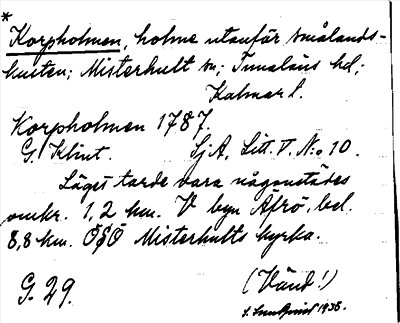 *
Korpholmen, holme utanför smålands-
kusten; Misterhult sn; Tunaläns hd;
Kalmar l.
Korpholmen 1787.
G. Klint. Sj A. Litt. V. No 10.
Läget torde vara någonstädes
omkr. 1,2 km. V byn Äfrö, bel.
8,8 km. ÖSÖ Misterhults kyrka.
G. 29. (Vänd!)
1938.